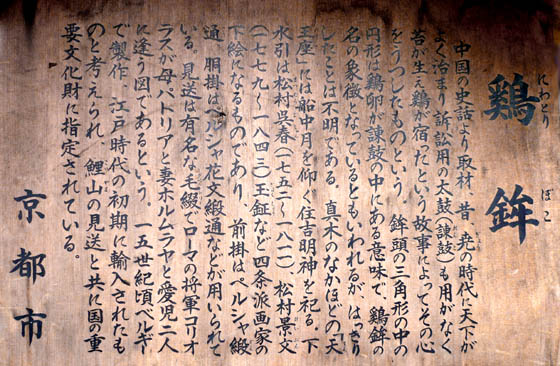 鶏鉾
にわとり ぼこ
中国の史話より取材、昔、尭の時代に天下が
よく治まり訴訟用の太鼓(諫鼓)も用がなく
苔が生え鶏が宿ったという故事によってその心
をうつしたものという。鉾頭の三角形の中の
円形は鶏卵が諫鼓の中にある意味で、鶏鉾の
名の象徴となっているともいわれるが、はっきり
したことは不明である。真木のなかほどの「天
王座」には船中月を仰ぐ住吉明神を祀る。下
水引は松村呉春(一七五二〜一八一一)、松村景文
(一七七九〜一八四三)玉鉦など四条派画家の
下絵になるものであり、前掛はペルシャ緞
通、胴掛はペルシャ花文緞通などが用いられて
いる。見送は有名な毛綴でローマの将軍コリオ
ラスが母パトリアと妻ホルムラヤと愛児二人
に逢う図であるという。一五世紀頃ベルギー
で製作、江戸時代の初期に輸入されたも
のと考えられ、鯉山の見送と共に国の重
要文化財に指定されている。
京都市